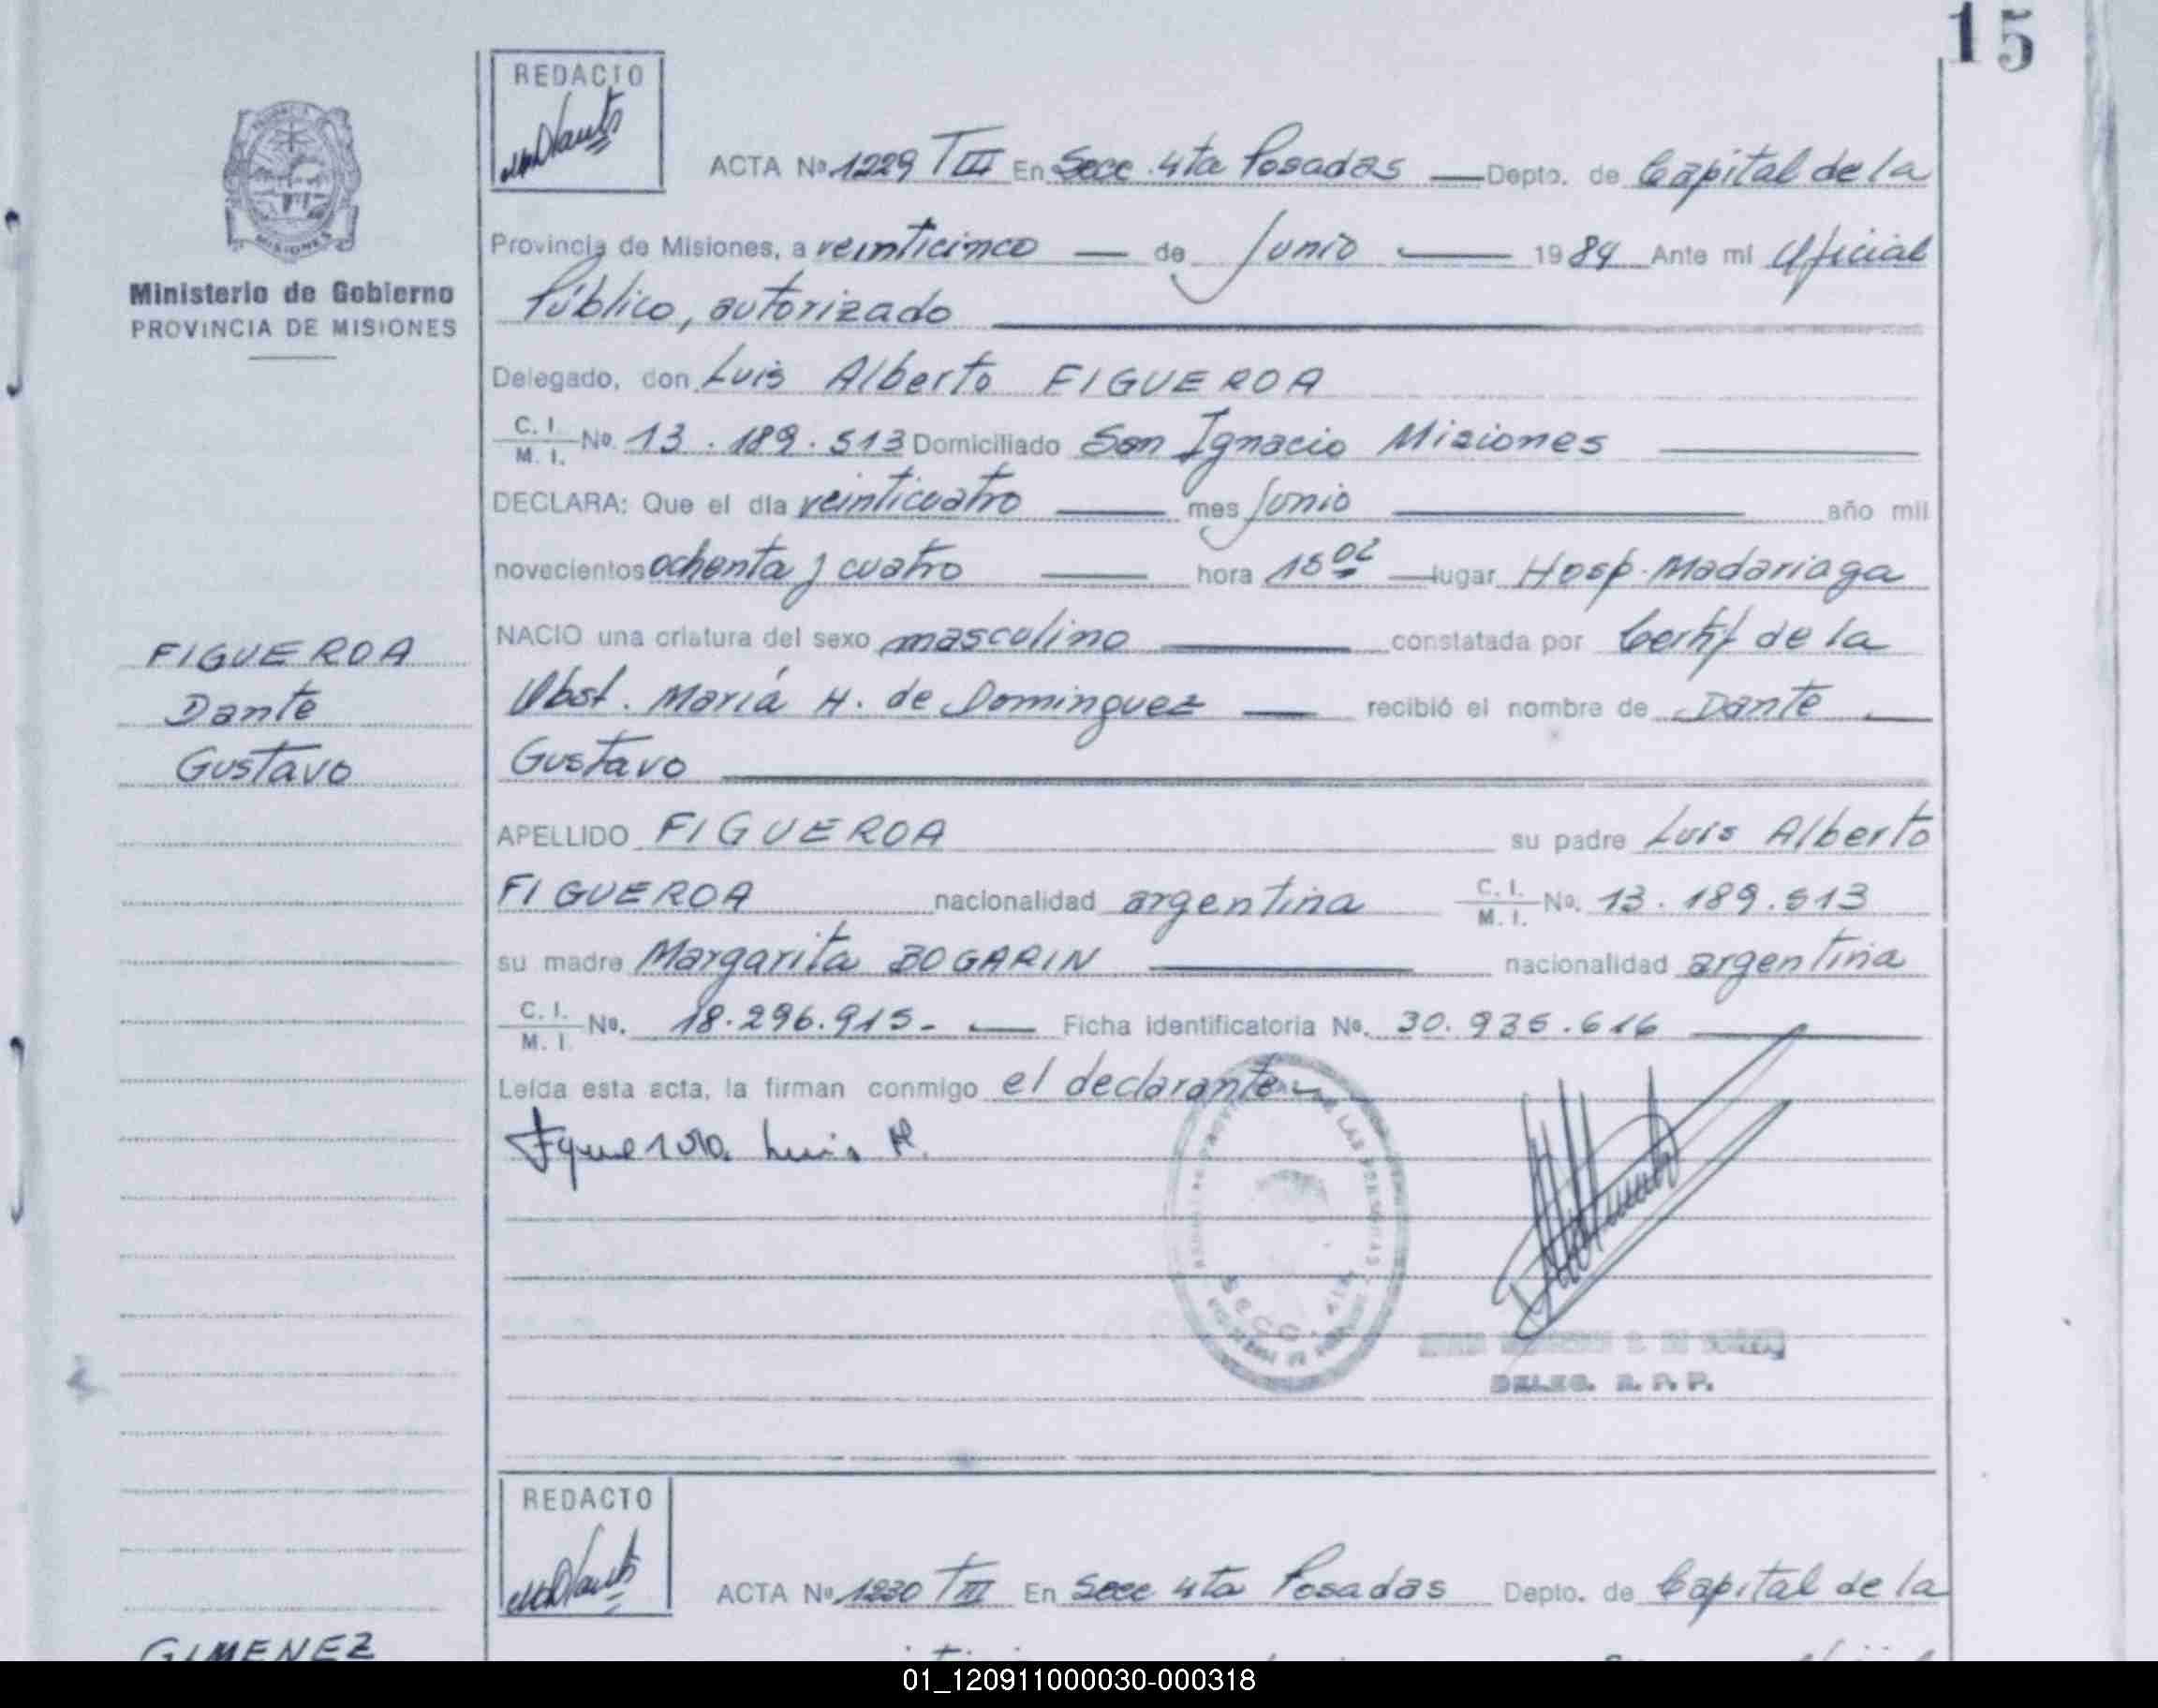 15
REDACTO
ACTA Nº 1229 TIII En Secc. 4ta Posadas — Depto. de Capital de la
Provincia de Misiones, a veinticinco — de Junio — 1984 Ante mí Oficial
Público, autorizado
Delegado, don Luis Alberto FIGUEROA
C. I. / M. I. Nº 13.189.513 Domiciliado San Ignacio Misiones
DECLARA: Que el día veinticuatro — mes Junio — año mil
novecientos ochenta y cuatro — hora 15 02 — lugar Hosp. Madariaga
NACIO una criatura del sexo masculino — constatada por Certif de la
Obst. María H. de Dominguez — recibió el nombre de Dante —
Gustavo
APELLIDO FIGUEROA su padre Luis Alberto
FIGUEROA nacionalidad argentina C. I. / M. I. Nº 13.189.513
su madre Margarita BOGARIN — nacionalidad argentina
C. I. / M. I. Nº 18.296.915.- — Ficha identificatoria Nº 30.935.616
Leída esta acta, la firman conmigo el declarante
Figueroa Luis A.
SECC. 4ta
DELEG. R. P. P.
Ministerio de Gobierno
PROVINCIA DE MISIONES
MISIONES
FIGUEROA
Dante
Gustavo
REDACTO
ACTA Nº 1230 TIII En Secc 4ta Posadas Depto. de Capital de la
GIMENEZ
01_120911000030-000318